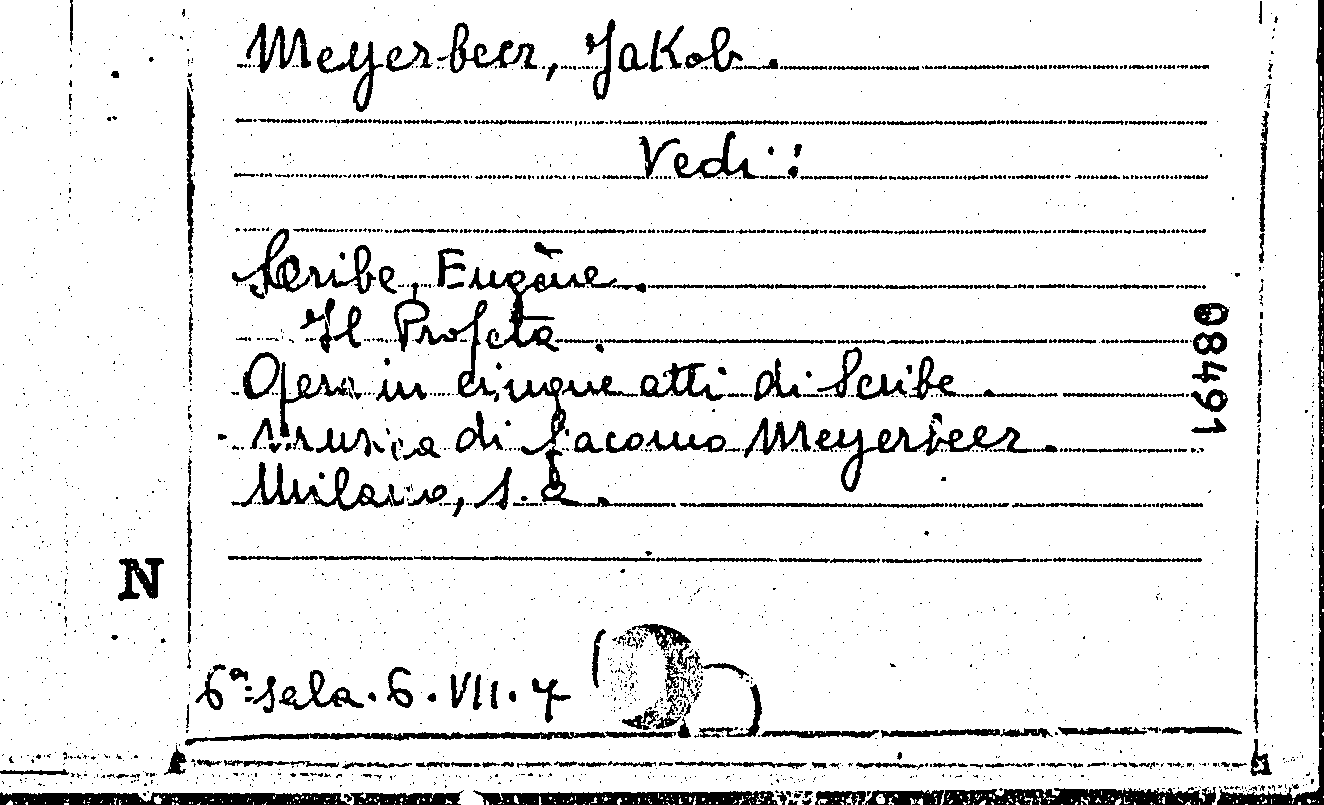 Meyerbeer, Jakob.
Vedi:
Scribe, Eugène.
Il Profeta.
Opera in cinque atti di Scribe.
Musica di Giacomo Meyerbeer.
Milano, s.a.
08491
N
6ª sala. 6. VII. 7